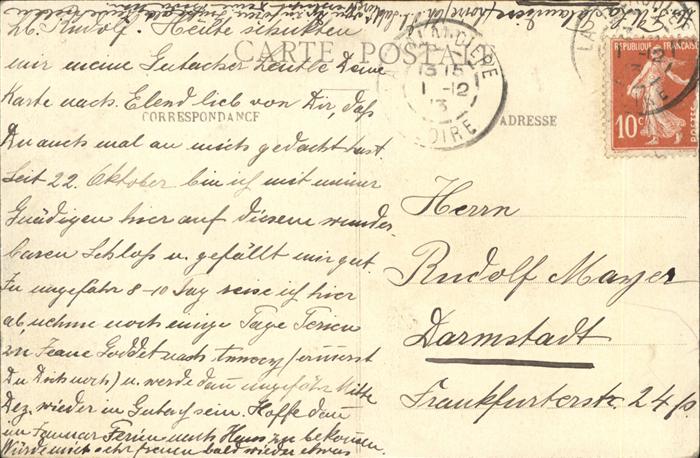 CARTE POSTALE
CORRESPONDANCE
ADRESSE
REPUBLIQUE FRANÇAISE
10c
13 15
1 -12
13
LOIRE
Lb. Rudolf. Heute schickten
mir meine Gutacher Leutle Deine
Karte nach. Elend lieb von Dir, daß
Du auch mal an mich gedacht hast.
Seit 22. Oktober bin ich mit meiner
Gnädigen hier auf diesem wunder-
baren Schloß u. gefällt mir gut.
In ungefähr 8-10 Tag reise ich hier
ab, nehme noch einige Tage Ferien
zu Jeane Goddet nach Annecy (erinnerst
Du Dich noch) u. werde dann ungefähr Mitte
Dez. wieder in Gutach sein. Hoffe dann
im Januar Ferien nach Haus zu bekommen.
Würde mich sehr freuen bald wieder etwas
Herrn
Rudolf Mayer
Darmstadt
Frankfurterstr. 24